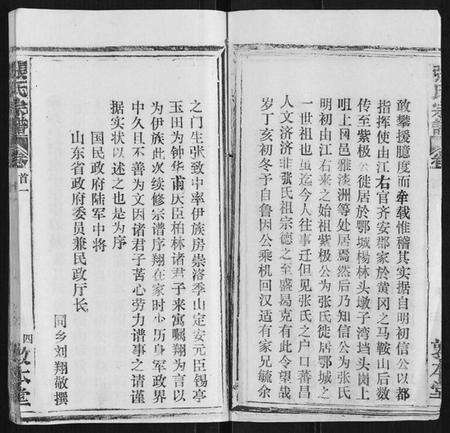 張氏宗譜
卷
敦本堂
敢攀援臆度而牵载惟稽其实据自明初信公以都
指挥使由江右官齐安郡家於黄冈之马鞍山后数
传至紫极公徙居於鄂城杨林头墩子湾垱头岗上
咀上冈邑雅淡洲等处居焉然后乃知信公为张氏
明初由江右来之始祖紫极公为张氏徙居鄂城之
一世祖也虽迄今人往事迁但见张氏之户口蕃昌
人文济济非张氏祖宗德之至盛曷克有此令望哉
岁丁亥初冬予自鲁因公乘机回汉适有家兄毓余
之门生张致中率伊族房崇洛季山定安元臣锡亭
玉田为钟华甫庆臣柏林诸君子来寓嘱翔为言以
为伊族此次续修宗谱序翔在家时少历身军政界
中久且不善为文因诸君子苦心劳力谱事之请谨
据实状以述之也是为序
国民政府陆军中将
山东省政府委员兼民政厅长
同乡刘翔敬撰
張氏宗譜
卷首一
四
敦本堂